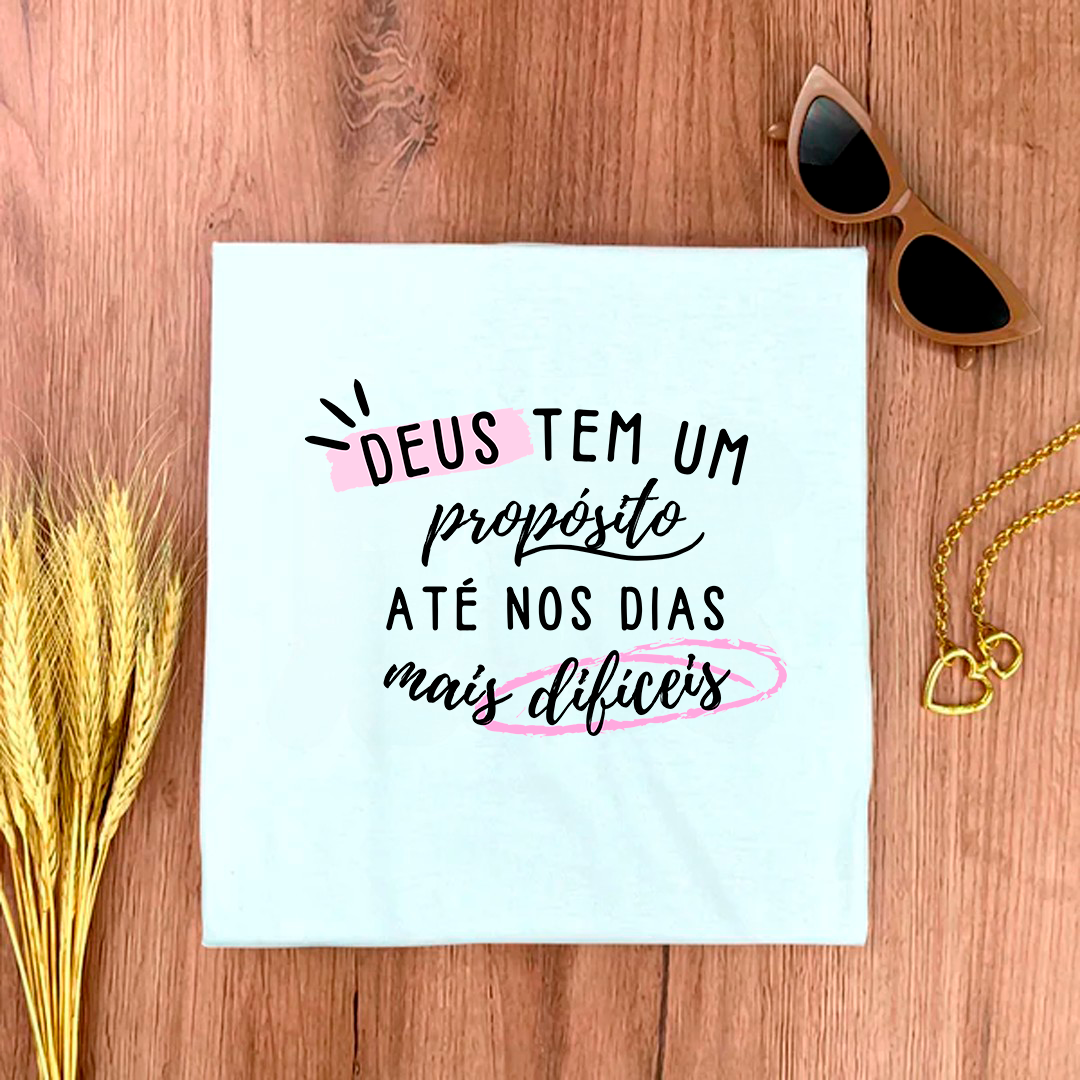 DEUS TEM UM
propósito
ATÉ NOS DIAS
mais difíceis